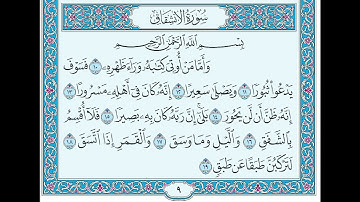 سُورَةُ الِانْشِقَاقِ
بِسْمِ اللَّهِ الرَّحْمَٰنِ الرَّحِيمِ
وَأَمَّا مَنْ أُوتِيَ كِتَابَهُ وَرَاءَ ظَهْرِهِ ۝١٠ فَسَوْفَ
يَدْعُوا ثُبُورًا ۝١١ وَيَصْلَىٰ سَعِيرًا ۝١٢ إِنَّهُ كَانَ فِي أَهْلِهِ مَسْرُورًا ۝١٣
إِنَّهُ ظَنَّ أَنْ لَنْ يَحُورَ ۝١٤ بَلَىٰ إِنَّ رَبَّهُ كَانَ بِهِ بَصِيرًا ۝١٥ فَلَا أُقْسِمُ
بِالشَّفَقِ ۝١٦ وَاللَّيْلِ وَمَا وَسَقَ ۝١٧ وَالْقَمَرِ إِذَا اتَّسَقَ ۝١٨
لَتَرْكَبُنَّ طَبَقًا عَنْ طَبَقٍ ۝١٩
٩